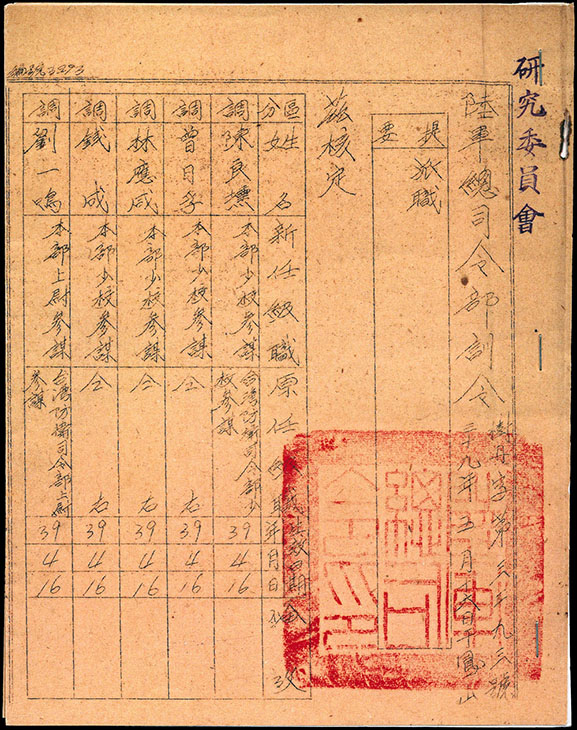 研究委員會
編號3293
陸軍總司令部訓令
三十九年五月十六日于鳳山
提要
派職
茲核定
區分 姓名 新任級職 原任級職 生效日期 年月日
調 陳良 本部少校參謀 台灣防衛司令部少校參謀 39 4 16
調 曾日孚 本部少校參謀 仝右 39 4 16
調 林應咸 本部少校參謀 仝右 39 4 16
調 錢成 本部少校參謀 仝右 39 4 16
調 劉一鳴 本部上尉參謀 台灣防衛司令部上尉參謀 39 4 16